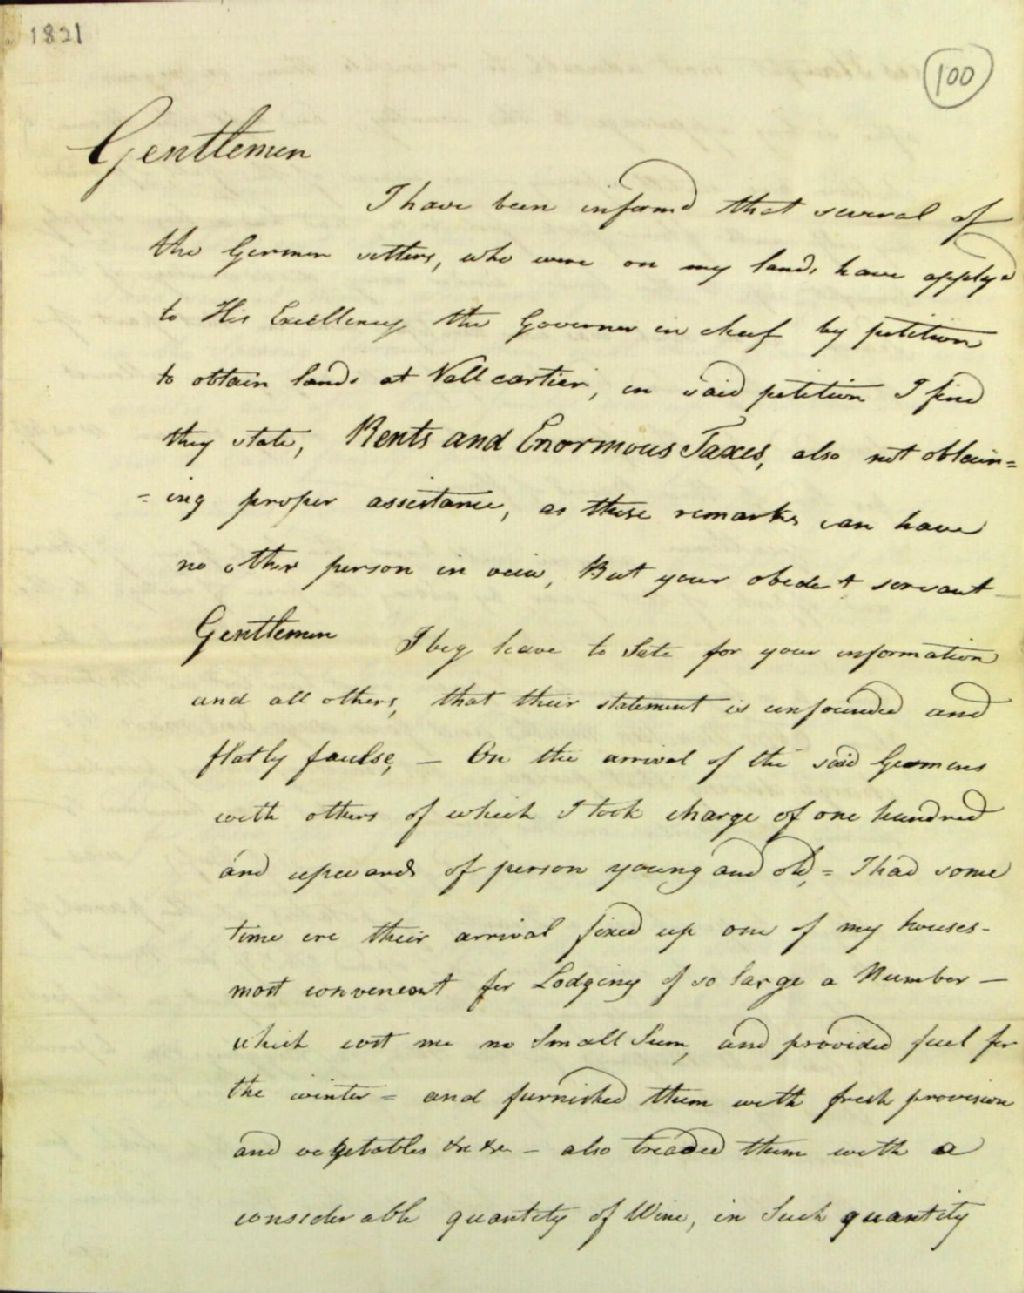 1821
100
Gentlemen
I have been inform'd that several of
the German setters, who were on my lands have apply'd
to His Excellency the Governor in cheef by petition
to obtain lands at Vall cartier, in said petition I find
they state, Rents and Enormous Taxes, also not obtain=
=ing proper assistance, as these remarks can have
no other person in view, But your obedet servant
Gentlemen I beg leave to Sate for your information
and all others, that their statement is unfounded and
flatly faulse, — On the arrival of the said Germans
with others of which I took charge of one hundred
and upwards of person young and old, = I had some
time ere their arrival fixed up one of my houses-
most convenent for Lodging of so large a Number —
which cost me no Small Sum, and provided fuel for
the winter = and furnished them with fresh provision
and vegetables &c &c — also treaded them with a
considerable quantity of Wine, in Such quantity